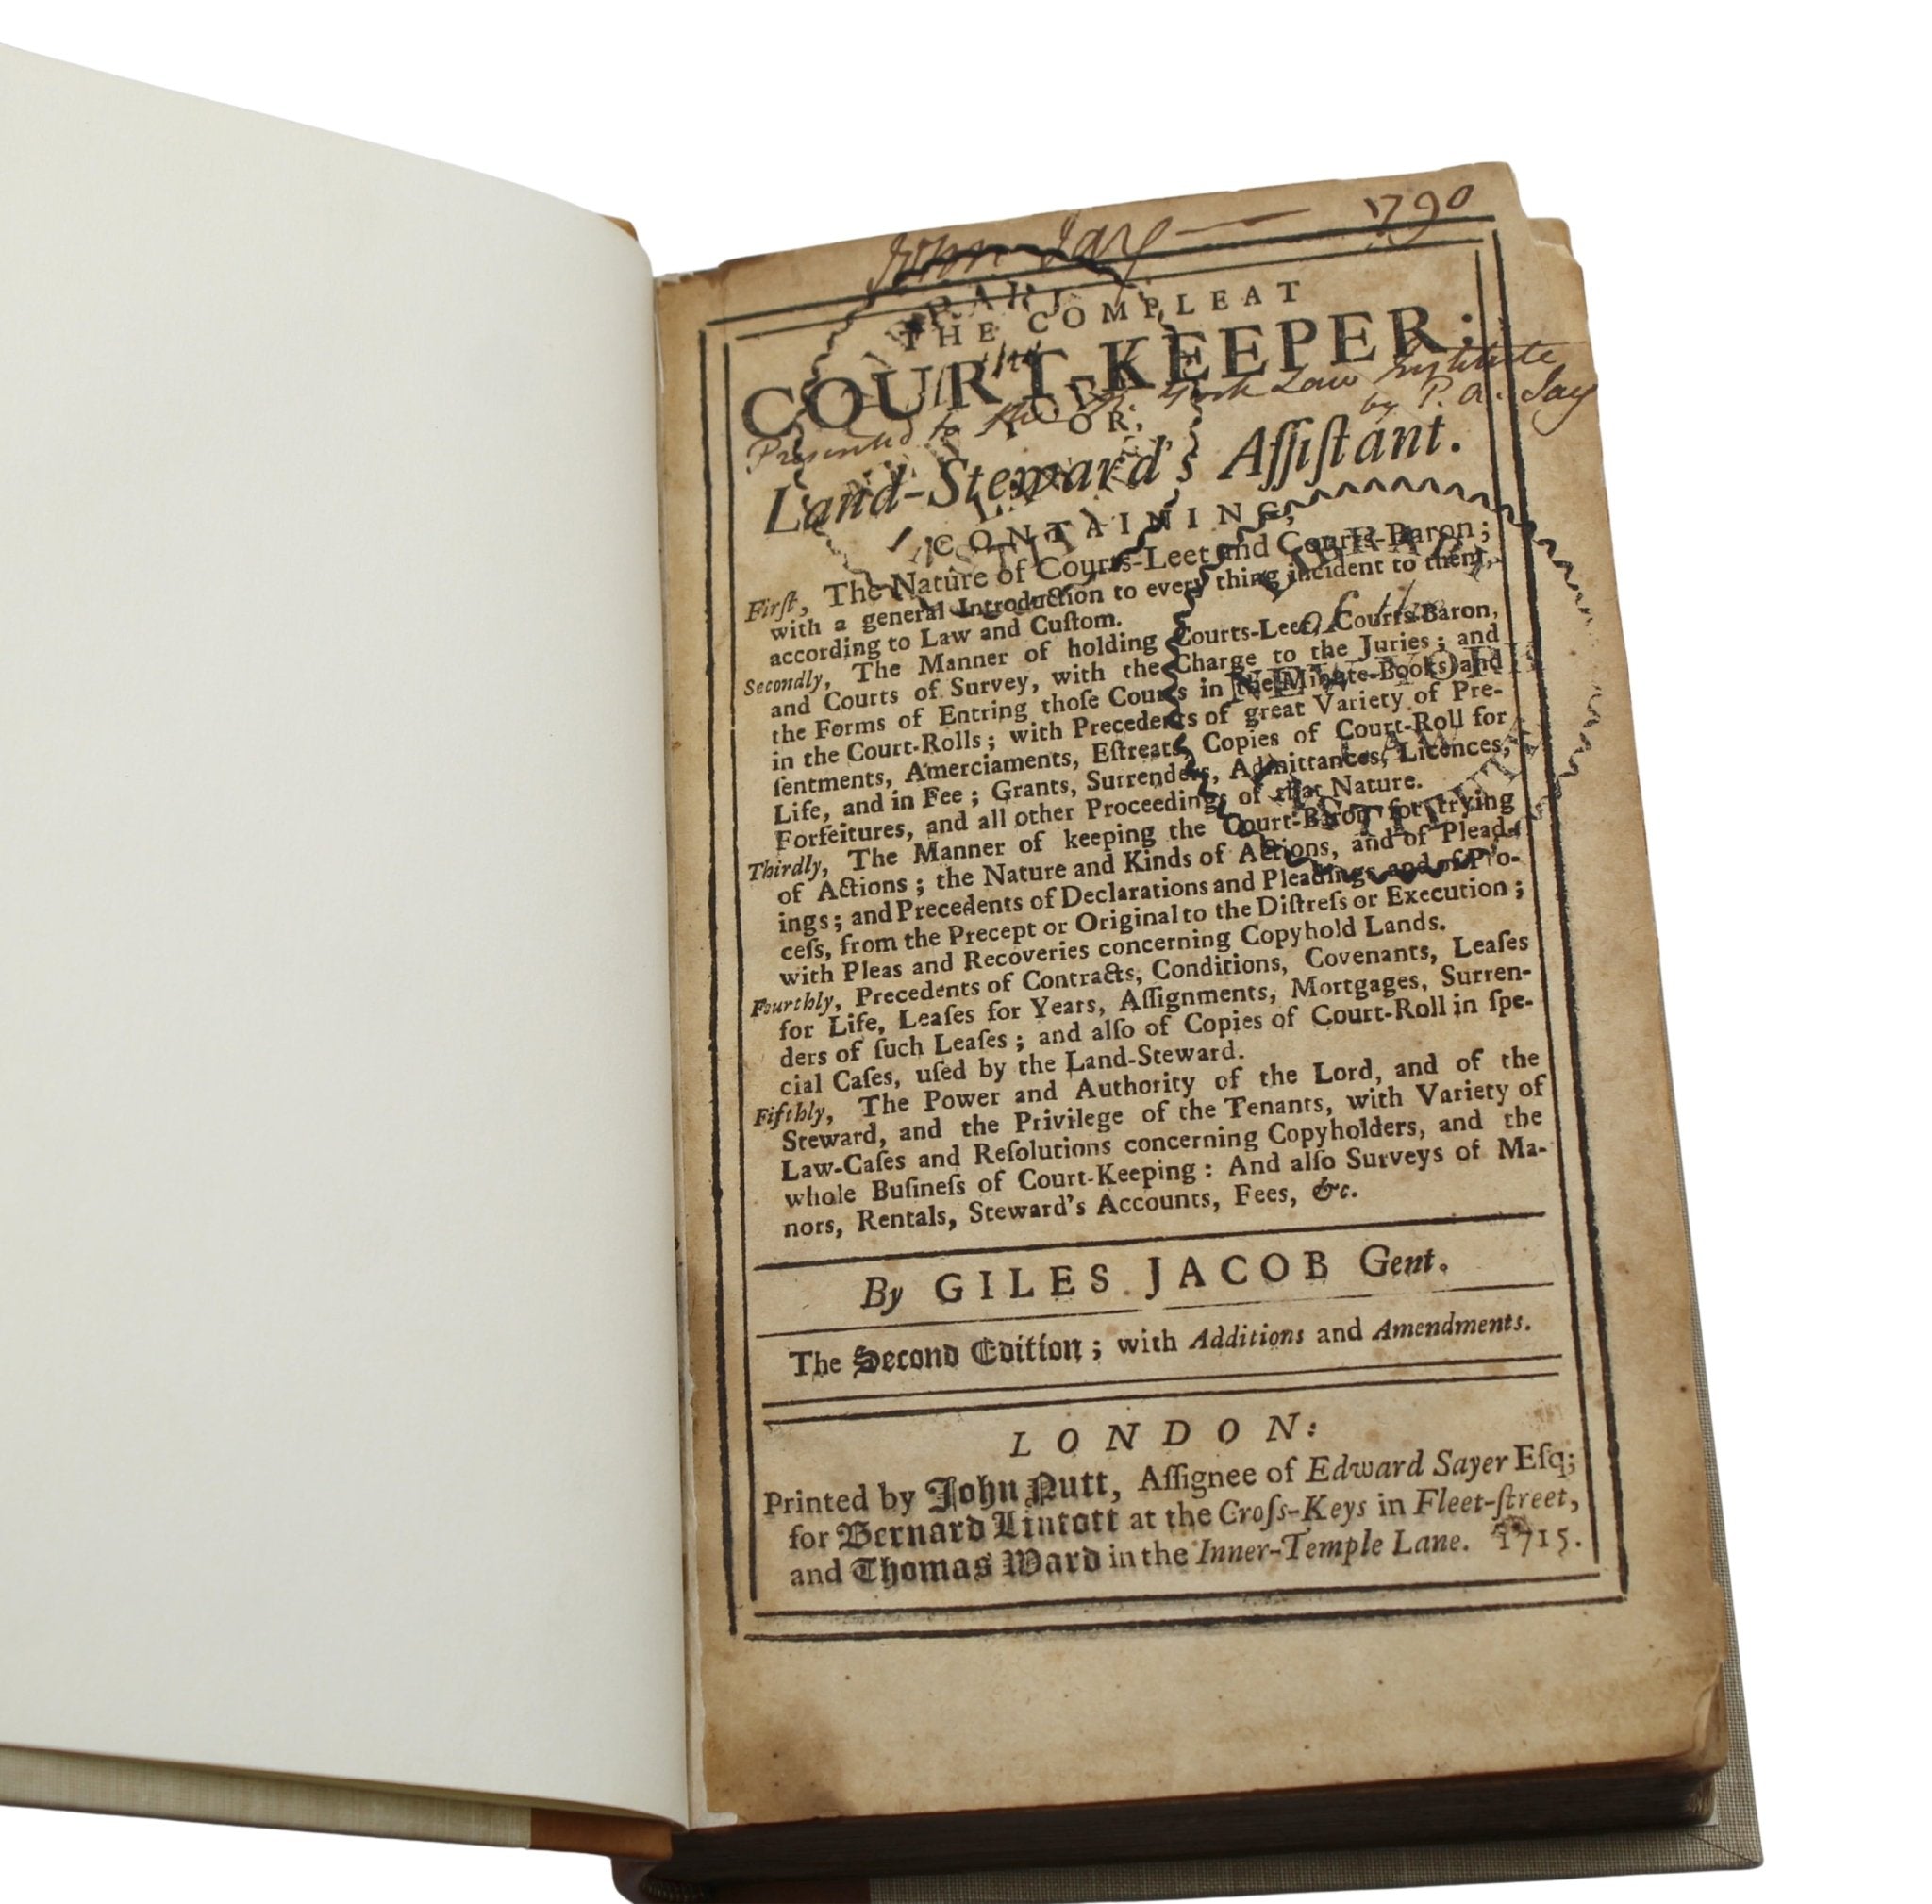 John Jay — 1790
THE COMPLEAT
COURT-KEEPER:
OR,
Presented to the N. York Law Institute
by P. A. Jay
Land-Steward's Aſſiſtant.
CONTAINING,
Firſt, The Nature of Courts-Leet and Courts-Baron;
with a general Introduction to every thing incident to them,
according to Law and Cuſtom.
Secondly, The Manner of holding Courts-Leet, Courts-Baron,
and Courts of Survey, with the Charge to the Juries; and
the Forms of Entring thoſe Courts in the Minute-Books and
in the Court-Rolls; with Precedents of great Variety of Pre-
ſentments, Amerciaments, Eſtreats, Copies of Court-Roll for
Life, and in Fee; Grants, Surrenders, Admittances, Licences,
Forfeitures, and all other Proceedings of that Nature.
Thirdly, The Manner of keeping the Court-Baron for trying
of Actions; the Nature and Kinds of Actions, and of Plead-
ings; and Precedents of Declarations and Pleadings and of Pro-
ceſs, from the Precept or Original to the Diſtreſs or Execution;
with Pleas and Recoveries concerning Copyhold Lands.
Fourthly, Precedents of Contracts, Conditions, Covenants, Leaſes
for Life, Leaſes for Years, Aſſignments, Mortgages, Surren-
ders of ſuch Leaſes; and alſo of Copies of Court-Roll in ſpe-
cial Caſes, uſed by the Land-Steward.
Fifthly, The Power and Authority of the Lord, and of the
Steward, and the Privilege of the Tenants, with Variety of
Law-Caſes and Reſolutions concerning Copyholders, and the
whole Buſineſs of Court-Keeping: And alſo Surveys of Ma-
nors, Rentals, Steward's Accounts, Fees, &c.
By GILES JACOB Gent.
The Second Edition; with Additions and Amendments.
LONDON:
Printed by John Nutt, Aſſignee of Edward Sayer Eſq;
for Bernard Lintott at the Croſs-Keys in Fleet-ſtreet,
and Thomas Ward in the Inner-Temple Lane. 1715.
LIBRARY
of the
NEW YORK
LAW
INSTITUTE